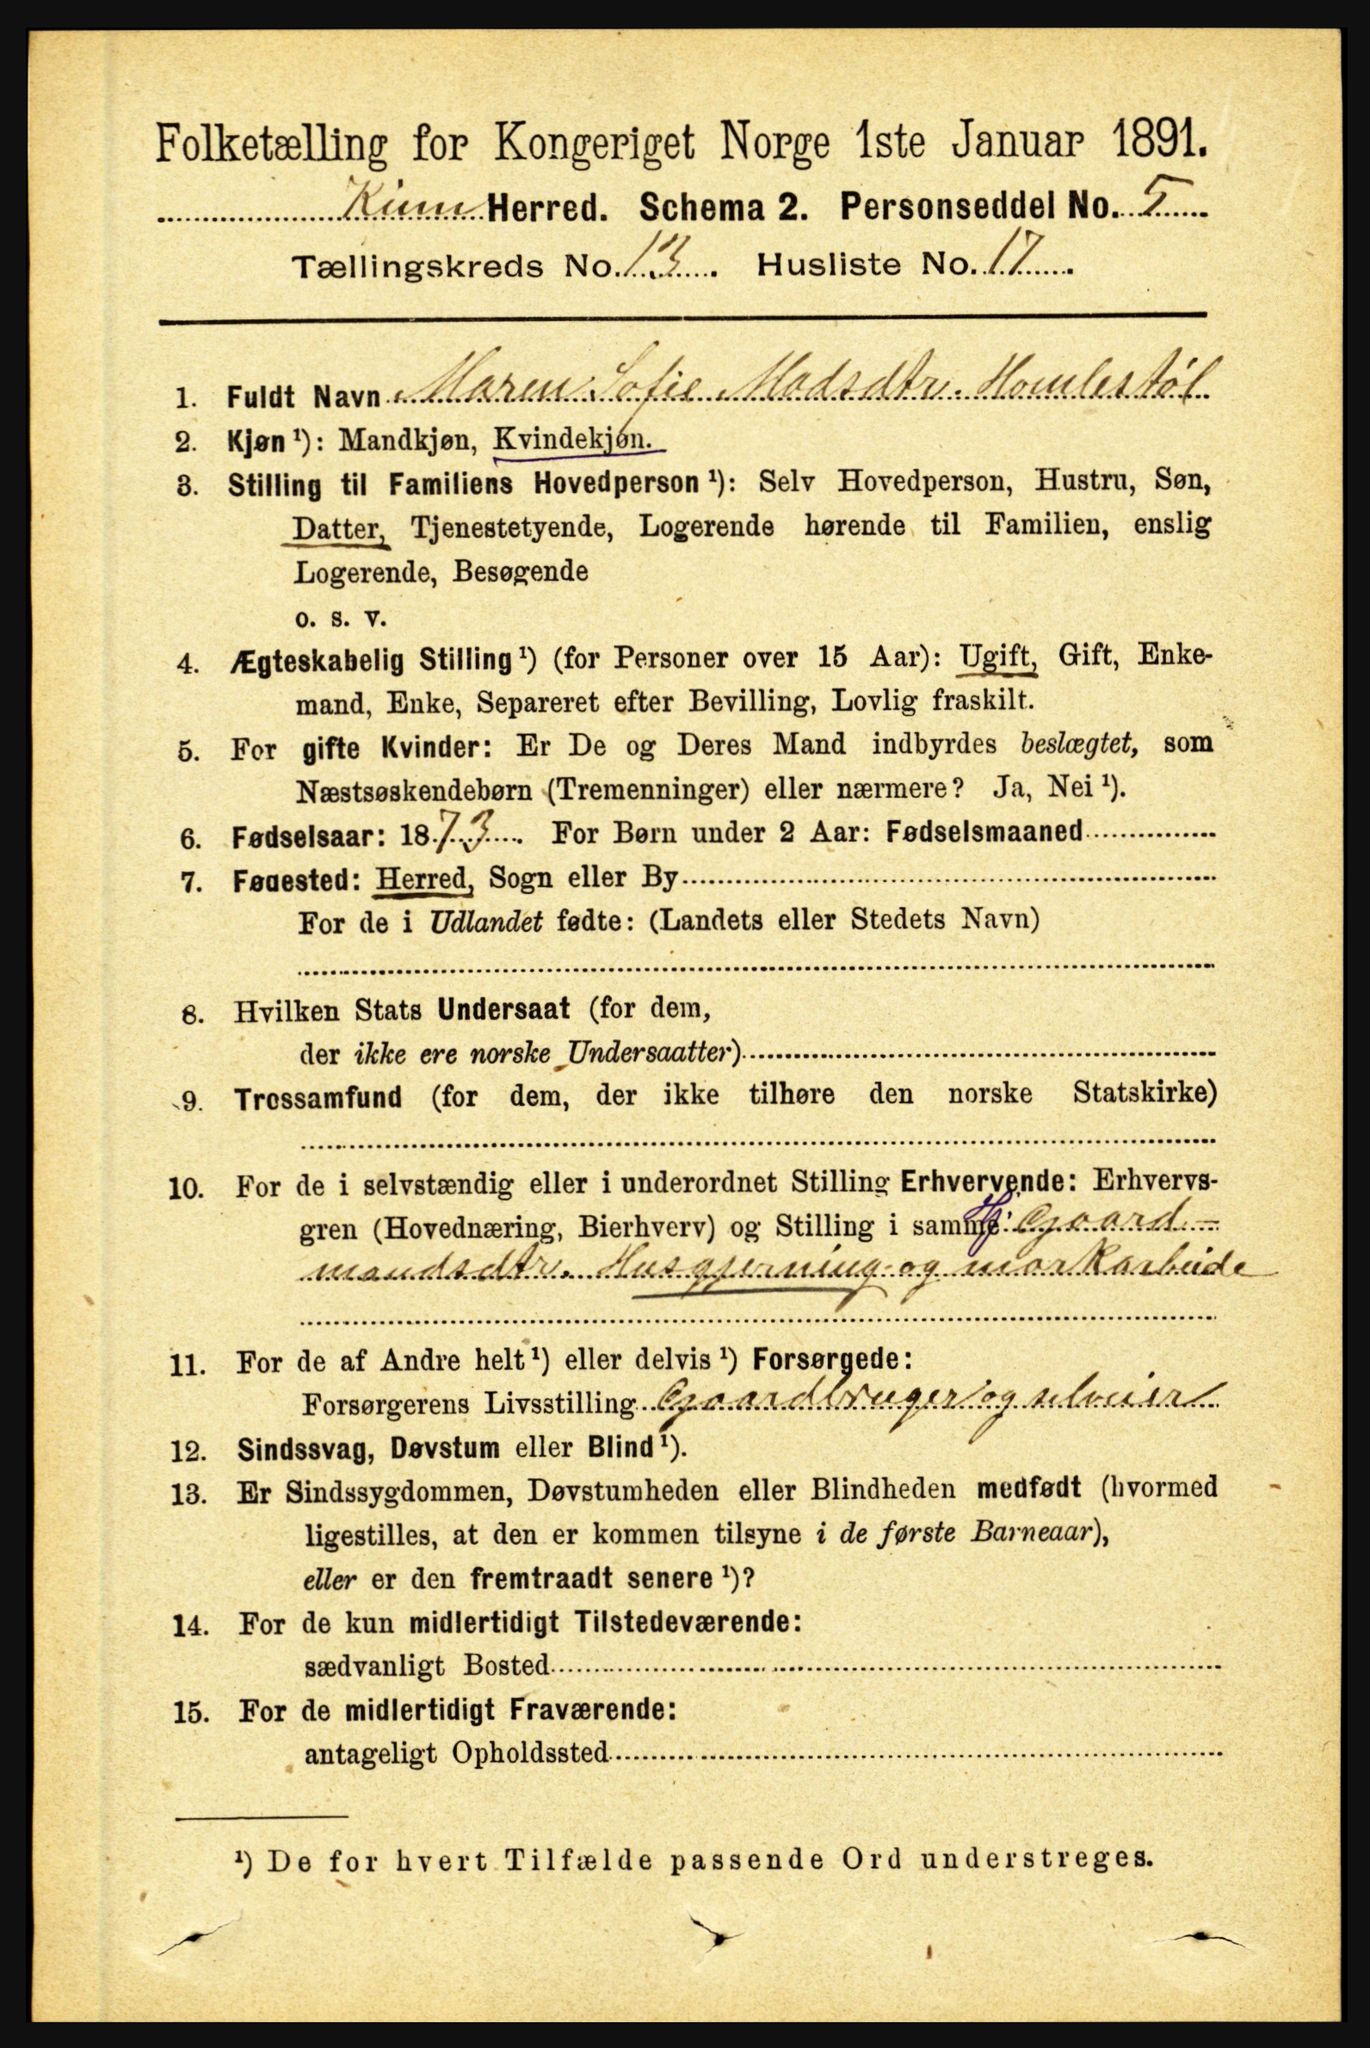 Folketælling for Kongeriget Norge 1ste Januar 1891.
Kinn Herred. Schema 2. Personseddel No. 5
Tællingskreds No. 13. Husliste No. 17
1. Fuldt Navn Maren Sofie Madsdtr. Homlestøl
2. Kjøn ¹): Mandkjøn, Kvindekjøn.
3. Stilling til Familiens Hovedperson ¹): Selv Hovedperson, Hustru, Søn,
Datter, Tjenestetyende, Logerende hørende til Familien, enslig
Logerende, Besøgende
o. s. v.
4. Ægteskabelig Stilling ¹) (for Personer over 15 Aar): Ugift, Gift, Enke-
mand, Enke, Separeret efter Bevilling, Lovlig fraskilt.
5. For gifte Kvinder: Er De og Deres Mand indbyrdes beslægtet, som
Næstsøskendebørn (Tremenninger) eller nærmere? Ja, Nei ¹).
6. Fødselsaar: 1873. For Børn under 2 Aar: Fødselsmaaned
7. Fødested: Herred, Sogn eller By
For de i Udlandet fødte: (Landets eller Stedets Navn)
8. Hvilken Stats Undersaat (for dem,
der ikke ere norske Undersaatter)
9. Trossamfund (for dem, der ikke tilhøre den norske Statskirke)
10. For de i selvstændig eller i underordnet Stilling Erhvervende: Erhvervs-
gren (Hovednæring, Bierhverv) og Stilling i samme: Gaard-
mandsdtr. Husgjerning og markarbeide
11. For de af Andre helt ¹) eller delvis ¹) Forsørgede:
Forsørgerens Livsstilling Gaardbruger og selveier
12. Sindssvag, Døvstum eller Blind ¹).
13. Er Sindssygdommen, Døvstumheden eller Blindheden medfødt (hvormed
ligestilles, at den er kommen tilsyne i de første Barneaar),
eller er den fremtraadt senere ¹)?
14. For de kun midlertidigt Tilstedeværende:
sædvanligt Bosted
15. For de midlertidigt Fraværende:
antageligt Opholdssted
¹) De for hvert Tilfælde passende Ord understreges.